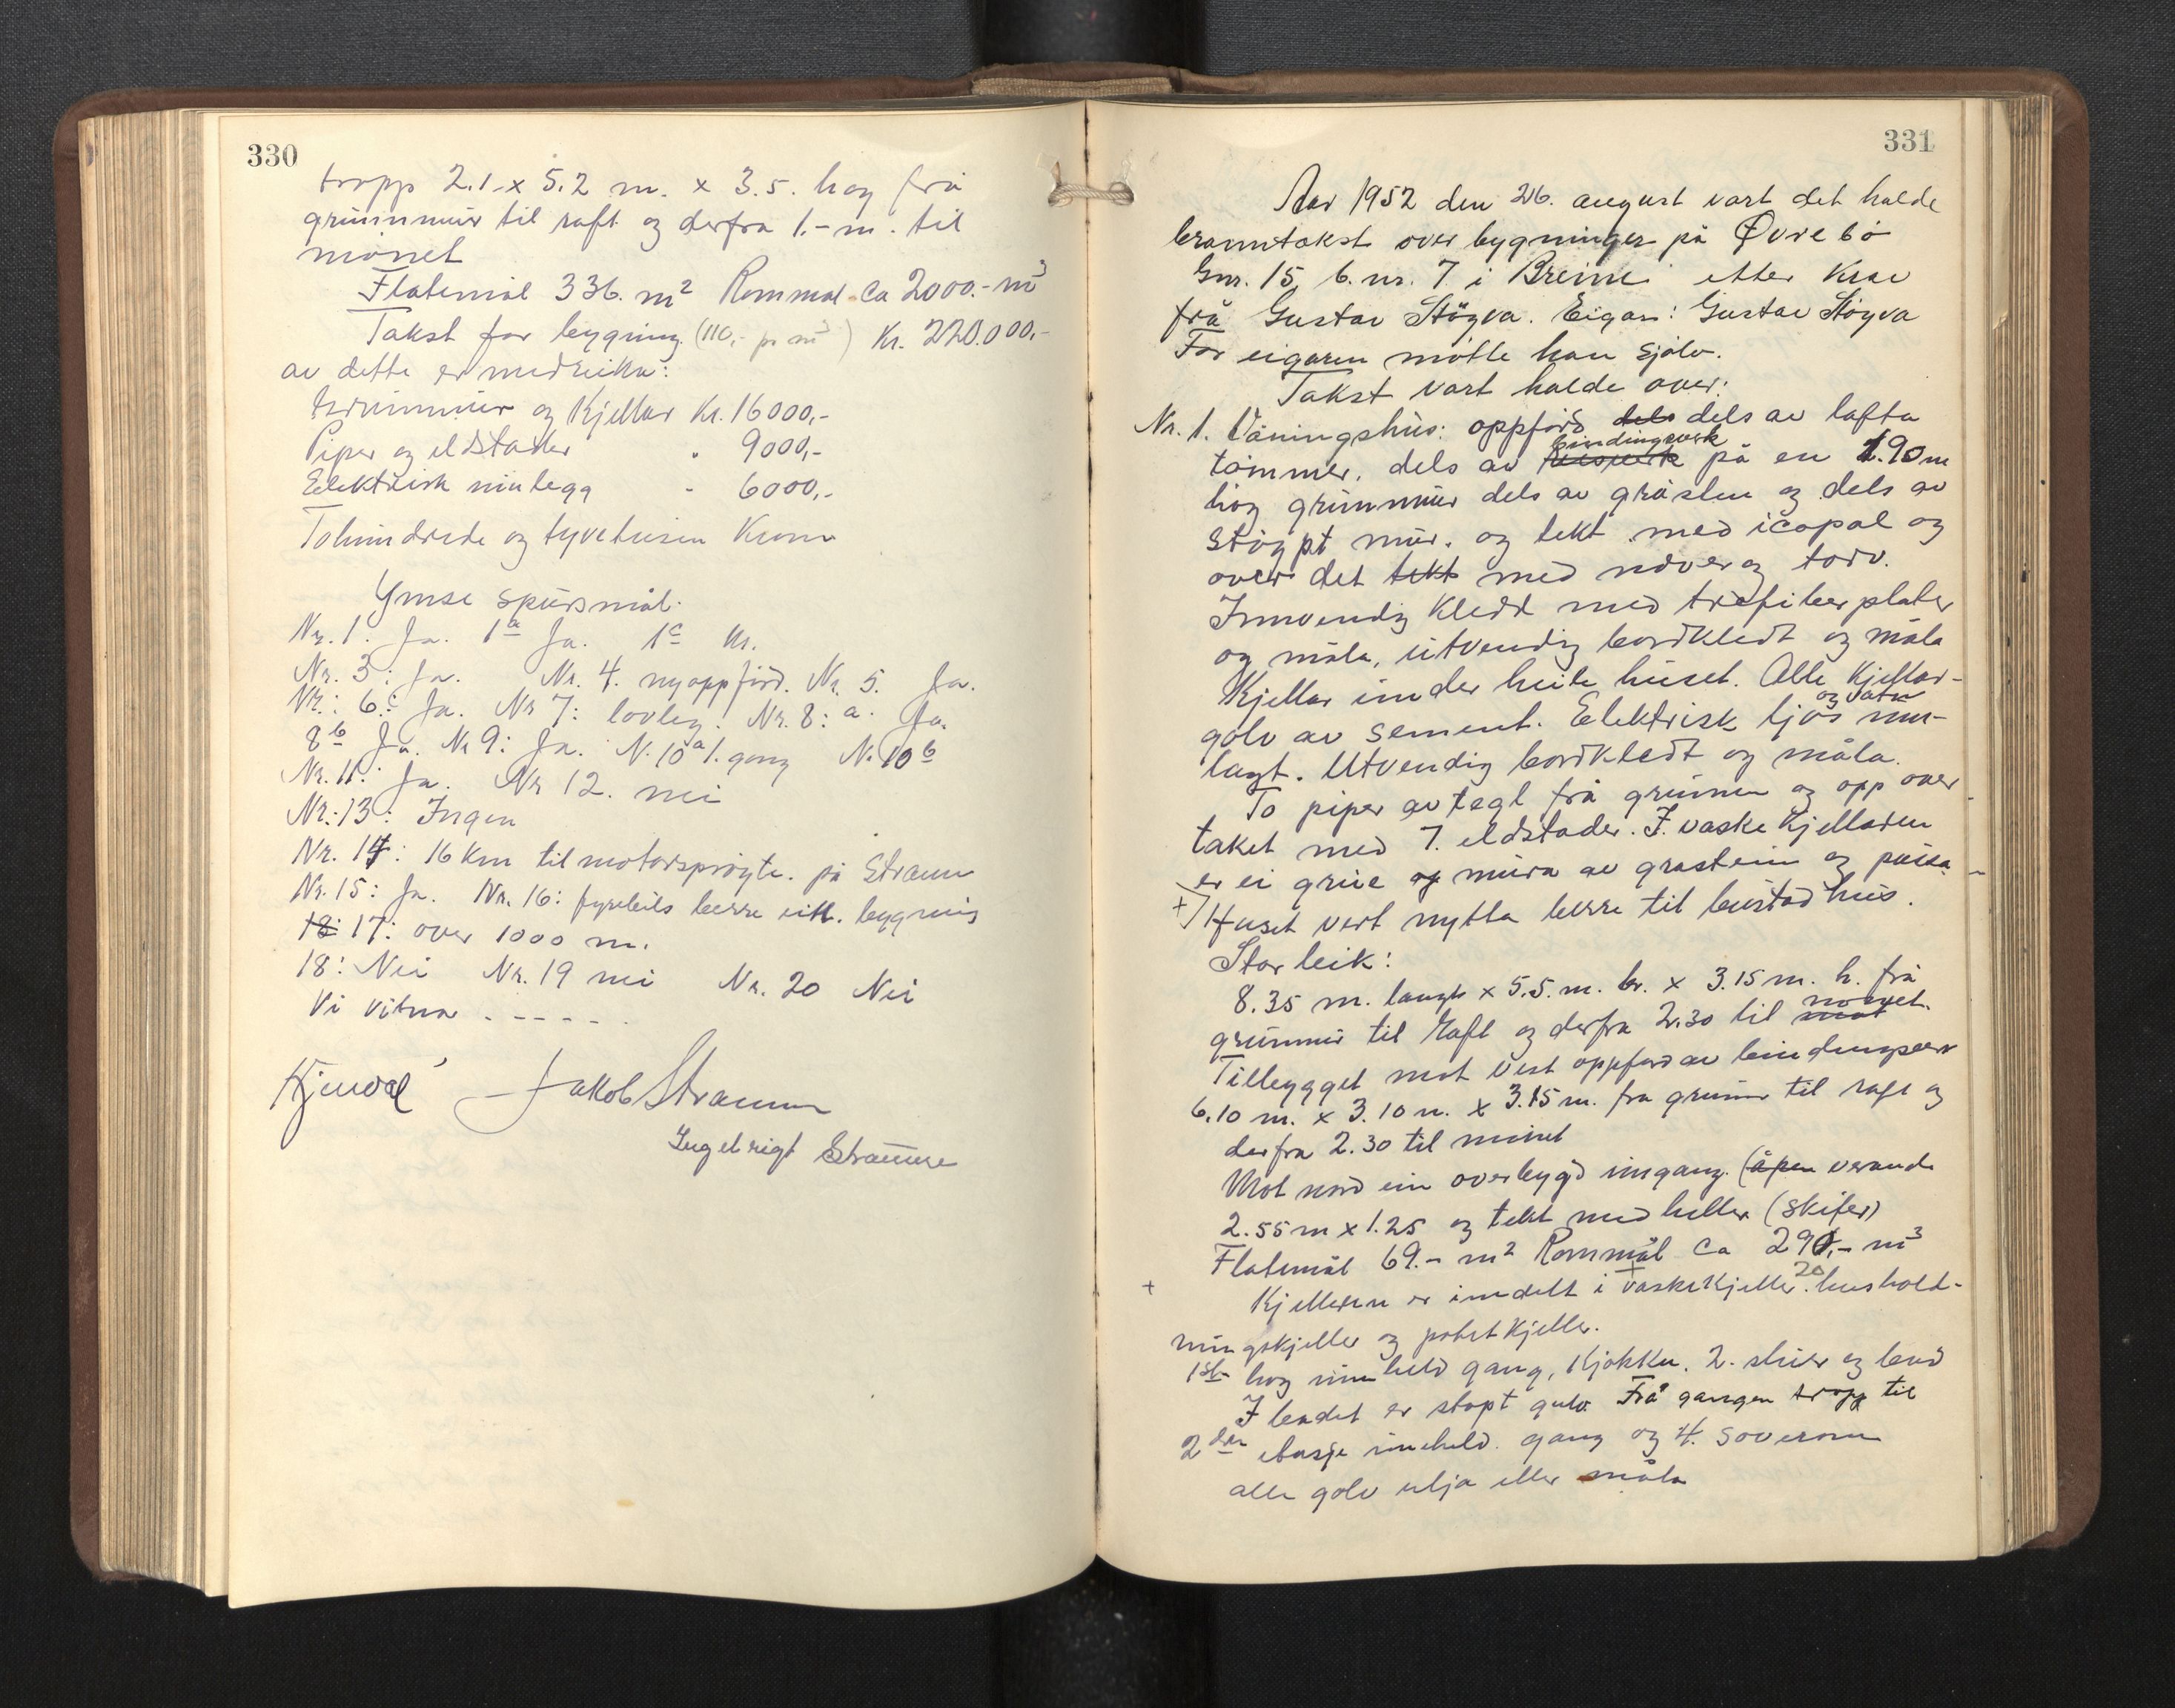 330
tropp 2.1 x 5.2 m. x 3.5. høg frå
grunnmur til raft og derfra 1.- m. til
mønet
Flatemål 336. m² Rommål ca 2000.- m³
Takst for bygning. (110,- pr m³) Kr. 220.000,-
av dette er medreikna:
Grunnmur og Kjellar Kr. 16000,-
Piper og eldstader " 9000,-
Elektrisk innlegg - 6000,-
Tohundrede og tyvetusen Kroner
Ymse spursmål.
Nr. 1. Ja. 1a Ja. 1c Kr.
Nr. 3: Ja. Nr. 4. nyoppförd. Nr. 5. Ja.
Nr.: 6.c Ja. Nr 7: lovleg. Nr. 8: a. Ja.
8b Ja. Nr 9: Ja. N. 10a 1. gong N. 10b
Nr. 11. Ja. Nr 12. nei
Nr.: 13: Ingen
Nr. 14: 16 km til motorsprøyte. på Straum
Nr. 15: Ja. Nr. 16: fyrebils berre eitt. bygning
18: 17: over 1000 m.
18: Nei Nr. 19 nei Nr. 20 Nei
Vi vitna . - - - - -
Jakob Straumе
Ingebrigt Straume
331
Aar 1952 den 26. august vart det halde
branntakst over bygninger på Øvrebö
Gnr. 15, b.nr. 7 i Breim etter Krav
frå Gustav Støyva. Eigar: Gustav Støyva
For eigaren møtte han sjølv.
Takst vart halde over:
Nr. 1. Våningshus: oppförd dels dels av lafta
bindingsverk
tømmer, dels av reisverk på en 1.90 m
høg grunnmur dels av gråstein og dels av
støypt mur. og tekt med icopal og
over det tekt med never og torv.
Innvendig Kledd med trefiberplater
og måla, utvendig bordkledt og måla
Kjellar under heile huset. Alle Kjellar-
og vatn
golv av sement. Elektrisk ljos inn-
lagt. Utvendig bordkledt og måla.
To piper av tegl frå grunnen og opp over
taket med 7. eldstader. I vaskekjellaren
er ei grue og mura av gråstein og pussa
+ Huset vert nytta berre til bustadhus.
Storleik:
8.35 m. langt x 5.5. m. br. x 3.15 m. h. frå
mønet.
grunnmur til Raft og derfra 2.30 til mot
Tillegget mot Vest oppført av bindingsverk
6.10 m. x 3.10 m. x 3.15 m. fra grunnm til raft og
derfra 2.30 til mønet
Mot nord ein overbygd inngang. (åpen veranda
2.55 m x 1.25 og tekt med heller (skifer)
Flatemål 69.- m² Rommål ca 290,- m³
+ Kjelleren er inndelt i vaskekjeller. hushold-
ningskjeller og potetkjeller.
1ste høg inneheld gang, Kjøkken. 2. stuer og bad
I badet er støpt gulv. Frå gangen tropp til
2den etasje inneheld. gang og 4. soverom
alle golv olja eller måla